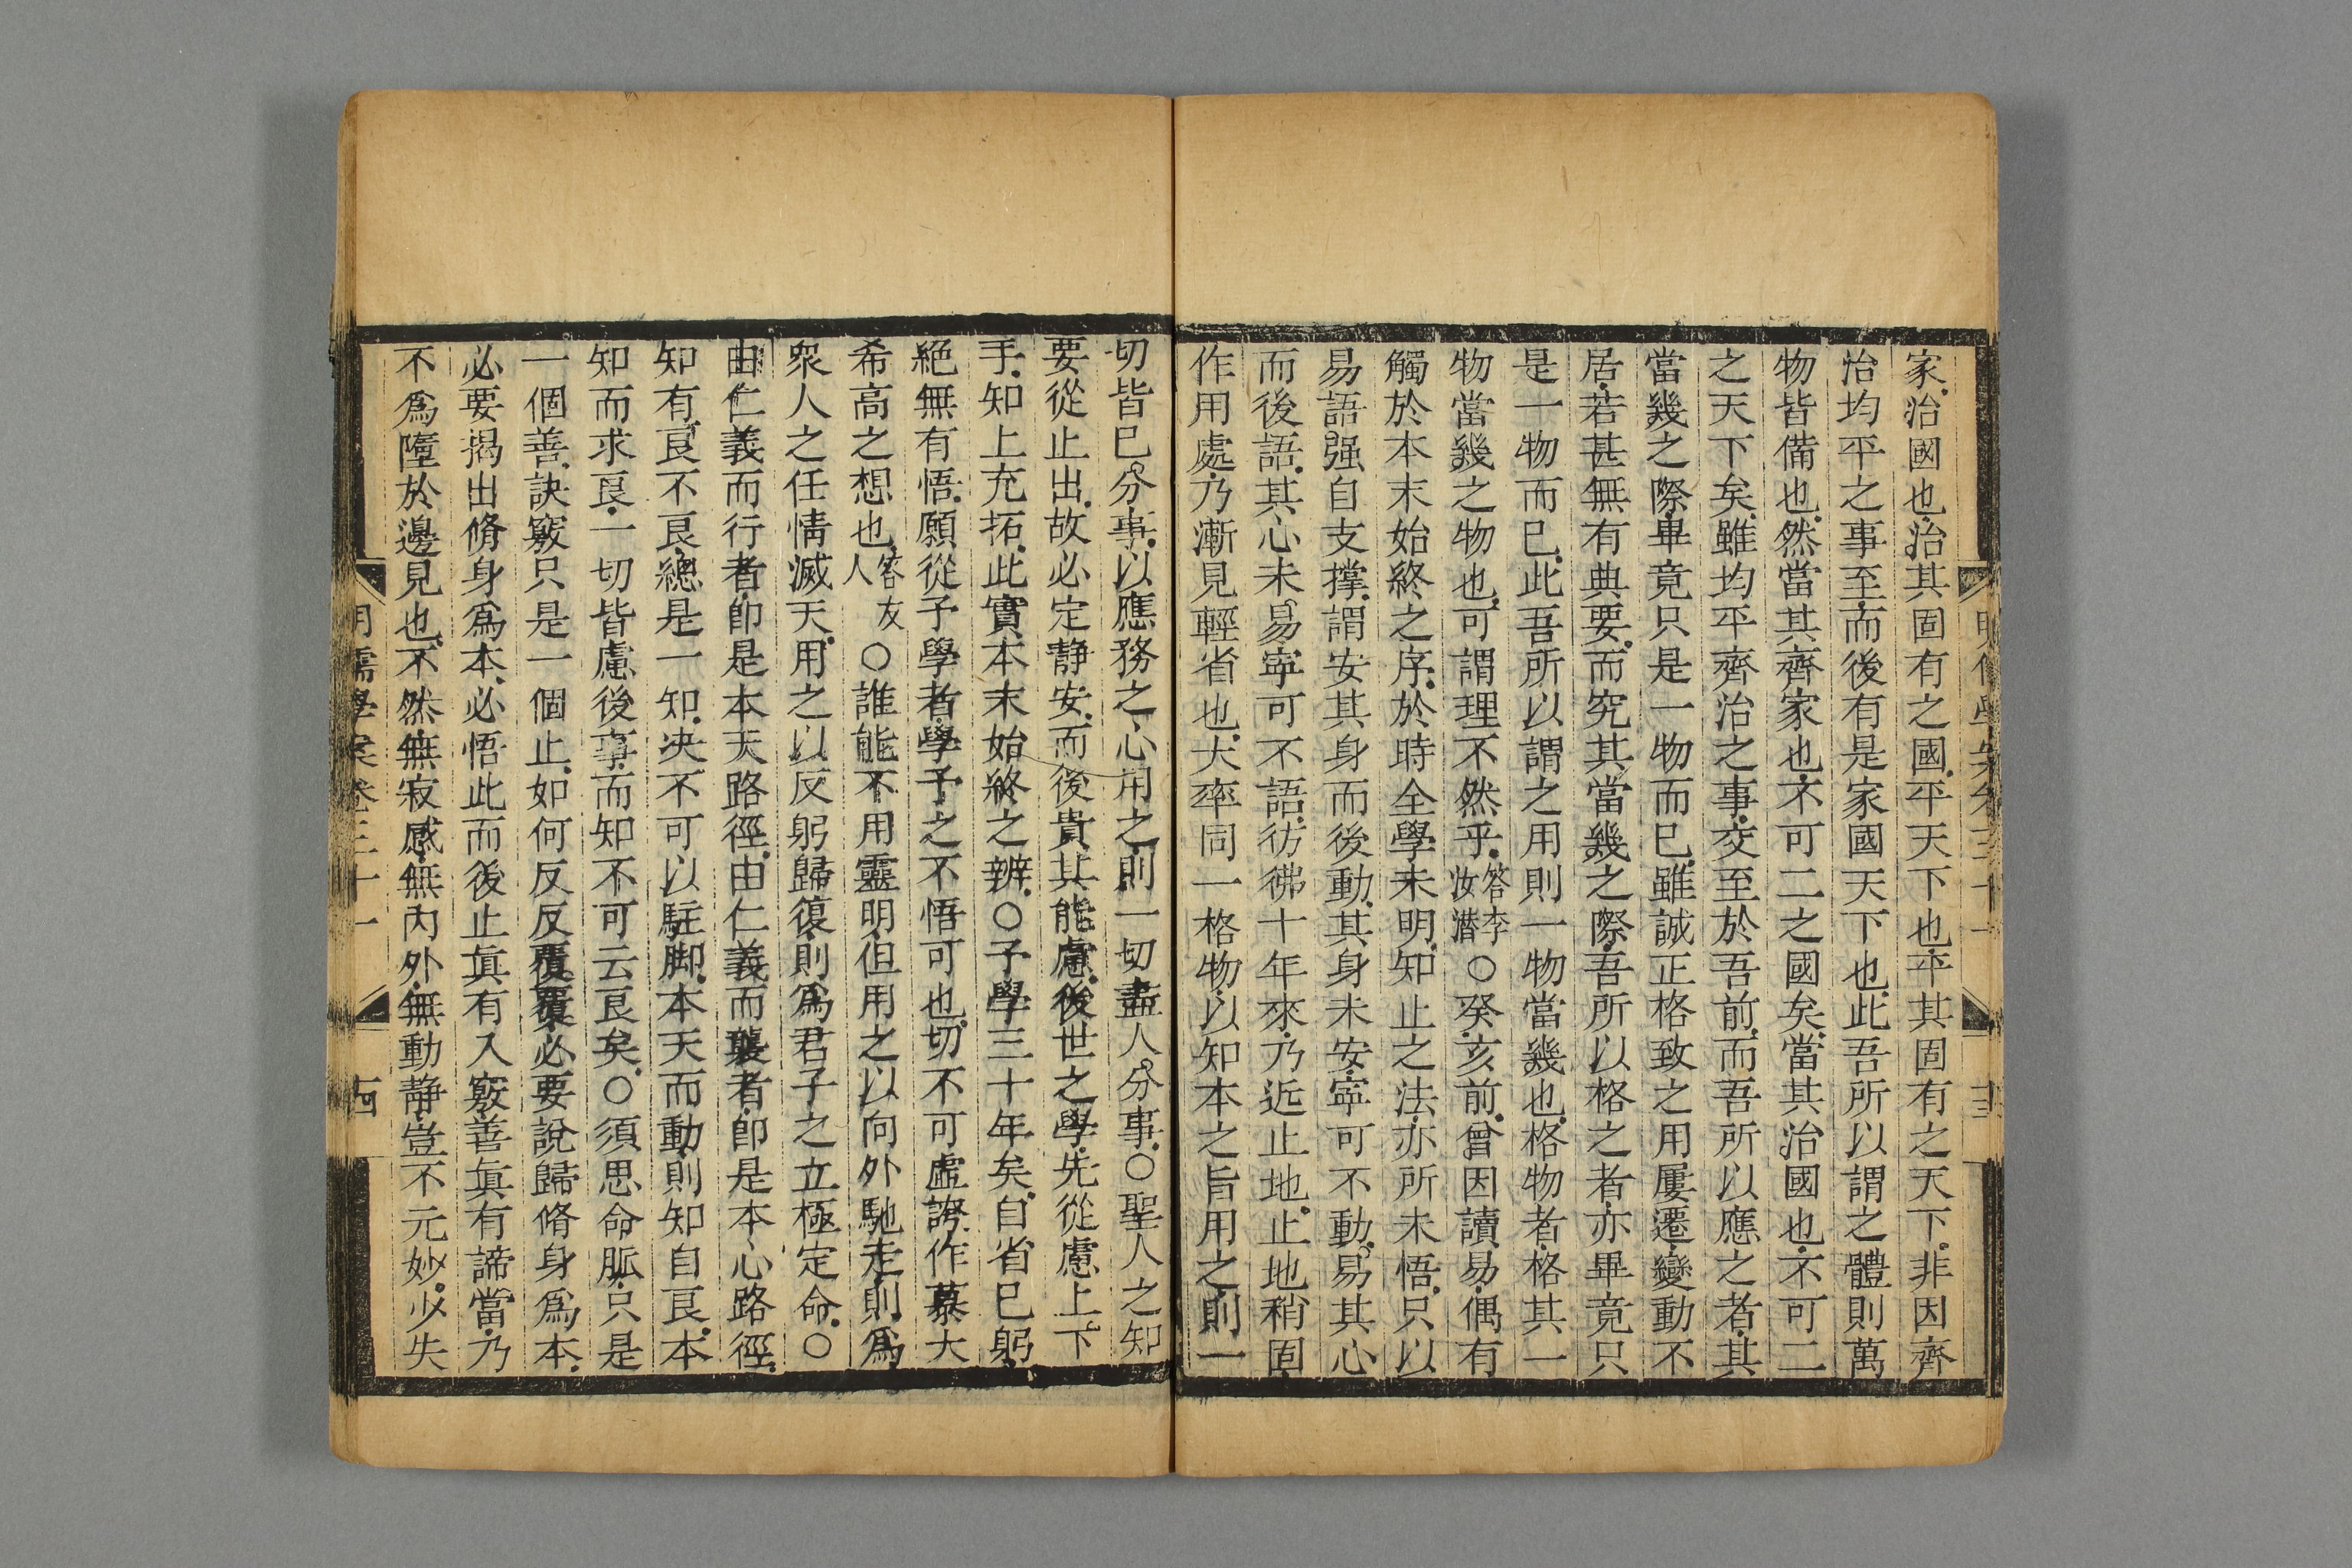 家治國也治其固有之國平天下也平其固有之天下非因齊
治均平之事至而後有是家國天下也此吾所以謂之體則萬
物皆備也然當其齊家也不可二之國矣當其治國也不可二
之天下矣雖均平齊治之事交至於吾前而吾所以應之者其
當幾之際畢竟只是一物而已雖誠正格致之用屢遷變動不
居若甚無有典要而究其當幾之際吾所以格之者亦畢竟只
是一物而已此吾所以謂之用則一物當幾也格物者格其一
物當幾之物也可謂理不然乎答李汝潛○癸亥前曾因讀易偶有
觸於本末始終之序於時全學未明知止之法亦所未悟只以
易語强自支撑謂安其身而後動其身未安寧可不動易其心
而後語其心未易寧可不語彷彿十年來乃近止地止地稍固
作用處乃漸見輕省也大率同一格物以知本之旨用之則一
切皆已分事以應務之心用之則一切盡人分事○聖人之知
要從止出故必定静安而後貴其能慮後世之學先從慮上下
手知上充拓此實本末始終之辨○予學三十年矣自省已躬
絕無有悟願從予學者學予之不悟可也切不可虛誇作慕大
希高之想也答友人○誰能不用靈明但用之以向外馳走則爲
衆人之任情滅天用之以反躬歸復則爲君子之立極定命○
由仁義而行者卽是本天路徑由仁義而襲者卽是本心路徑
知有良不良總是一知决不可以駐脚本天而動則知自良本
知而求良一切皆慮後事而知不可云良矣○須思命脈只是
一個善訣竅只是一個止如何反反覆覆必要說歸脩身爲本
必要揭出脩身爲本必悟此而後止眞有入竅善眞有諦當乃
不爲墮於邊見也不然無寂感無內外無動静豈不元妙少失
明儒學案卷三十一
古